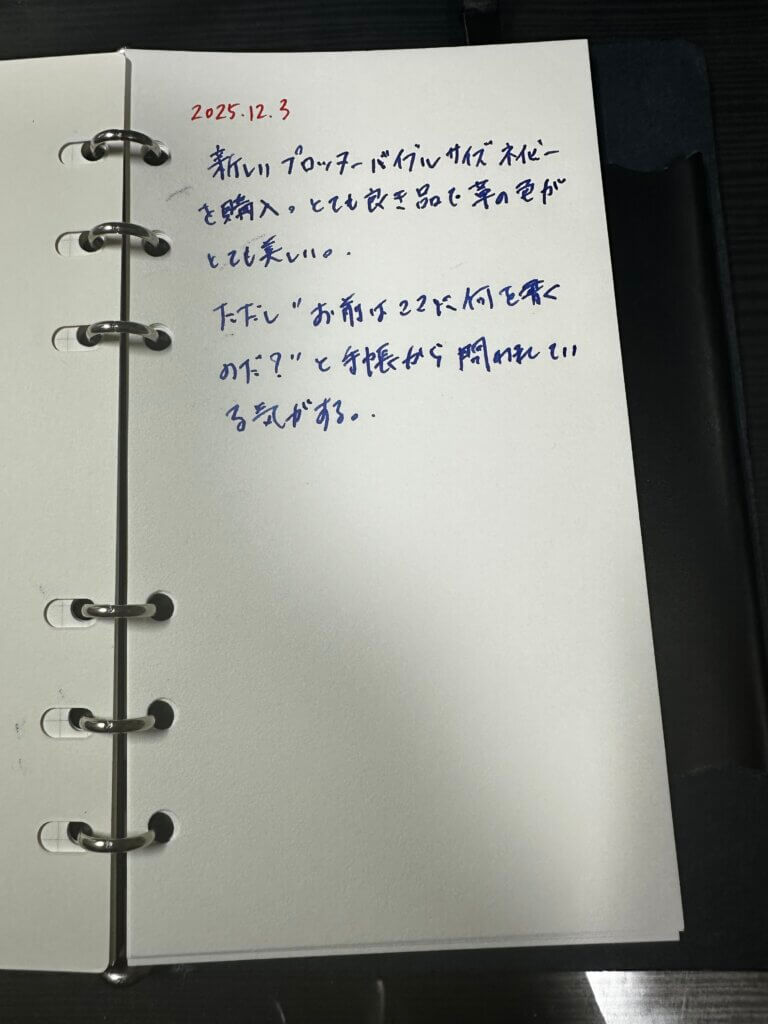 2025.12.3
新しい プロッター バイブル サイズ ネイビー
を購入。とても良き品で革の色が
とても美しい。
ただし"お前はココに何を書く
のだ?"と手帳から問われてい
る気がする。